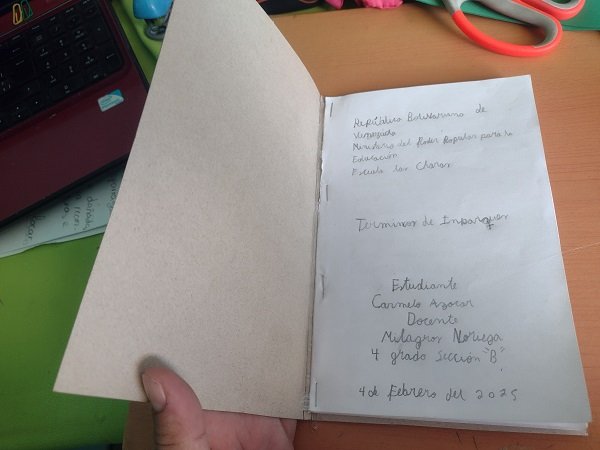 República Bolivariana de
Venezuela
Ministerio del Poder Popular para la
Educación
Escuela las Charas
Terminos de Inparques
Estudiante
Carmelo Azocar
Docente
Milagros Noriega
4 grado Sección "B"
4 de Febrero del 2025